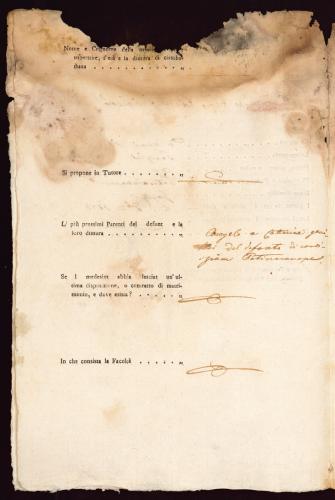 Nome e Cognome della
superstite, l'età e la dimora di ciaschedu-
duna . . . . . . . . . . . „
Si propone in Tutore . . . . . . „
L'i più prossimi Parenti del defont e la
loro dimora . . . . . . . . . . „
Angelo e Catterina geni-
del defonto di con-
Se i medesimi abbia lasciat un'ul-
tima disposizione, o contratto di matri-
monio, e dove esista? . . . . . . „
In che consista la Facoltà . . . . . „